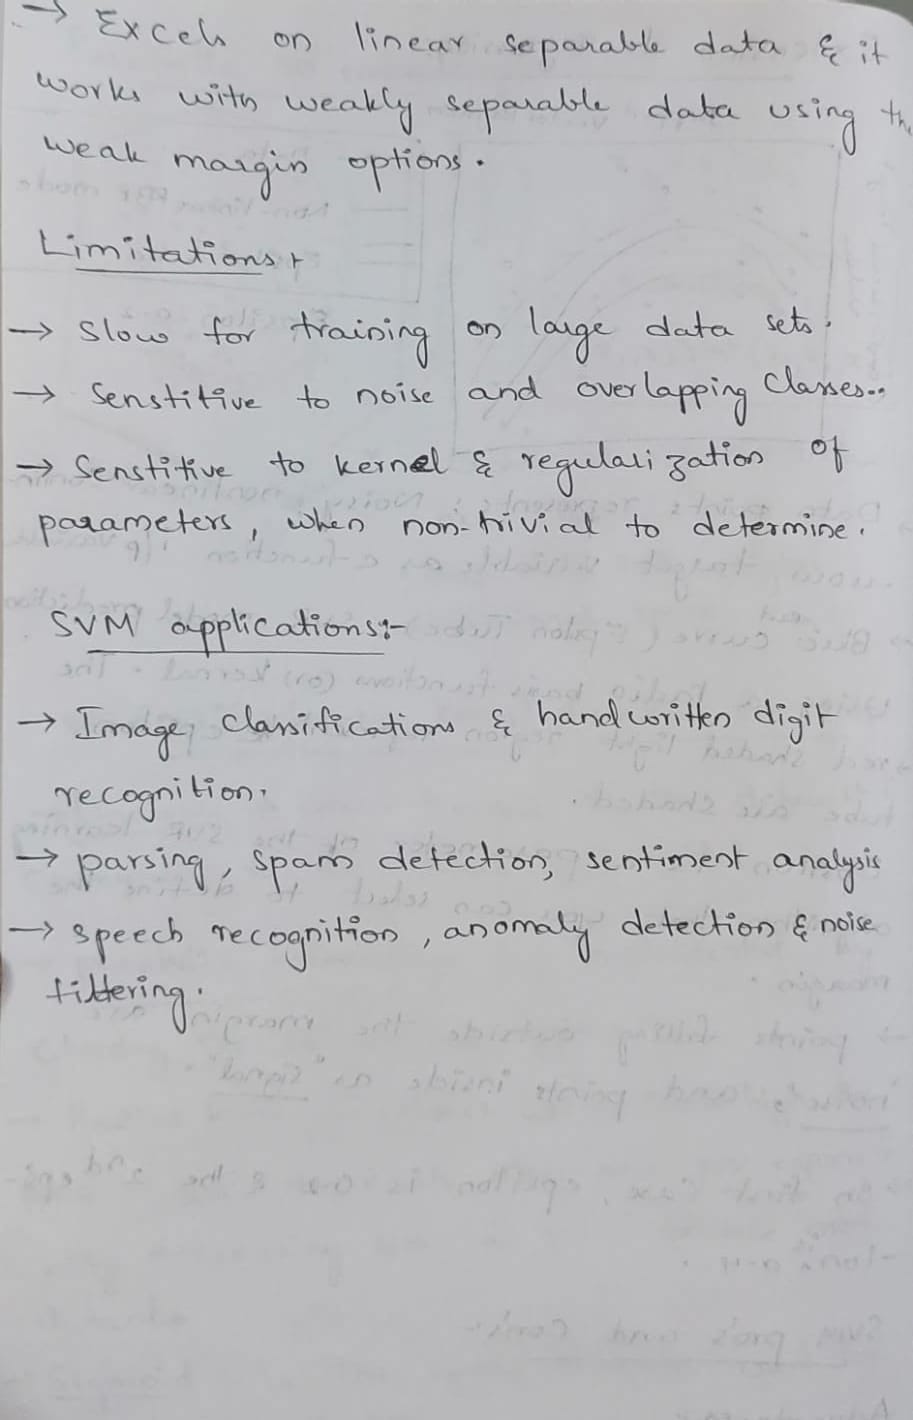 → Excels on linear separable data & it
works with weakly separable data using
weak margin options.
Limitations:-
→ Slow for training on large data sets.
→ Senstitive to noise and overlapping classes..
→ Senstitive to kernel & regularization of
parameters, when non-trivial to determine.
SVM applications:-
→ Image, classifications & handwritten digit
recognition.
→ parsing, spam detection, sentiment analysis
→ speech recognition, anomaly detection & noise
filtering.